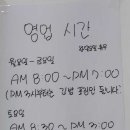 영업 시간
월요일~금요일
AM 8:00~PM 7:00
(PM 3시부터는 김밥 포장만 됩니다)
토요일
AM 8:30~PM 3:00